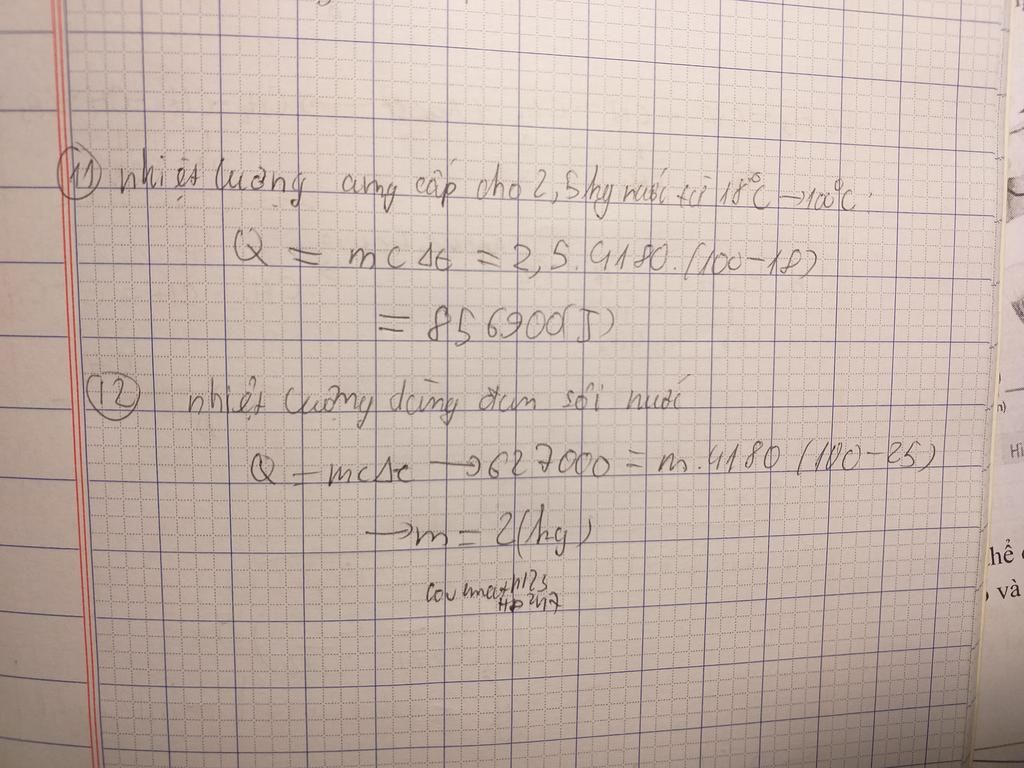 11 nhiệt lượng cung cấp cho 2,5kg nước từ 18°C → 100°C:
Q = mcΔt = 2,5.4180.(100-18)
= 856900(J)
12 nhiệt lượng dùng đun sôi nước
Q = mcΔt → 627000 = m.4180 (100-25)
→ m = 2(kg)